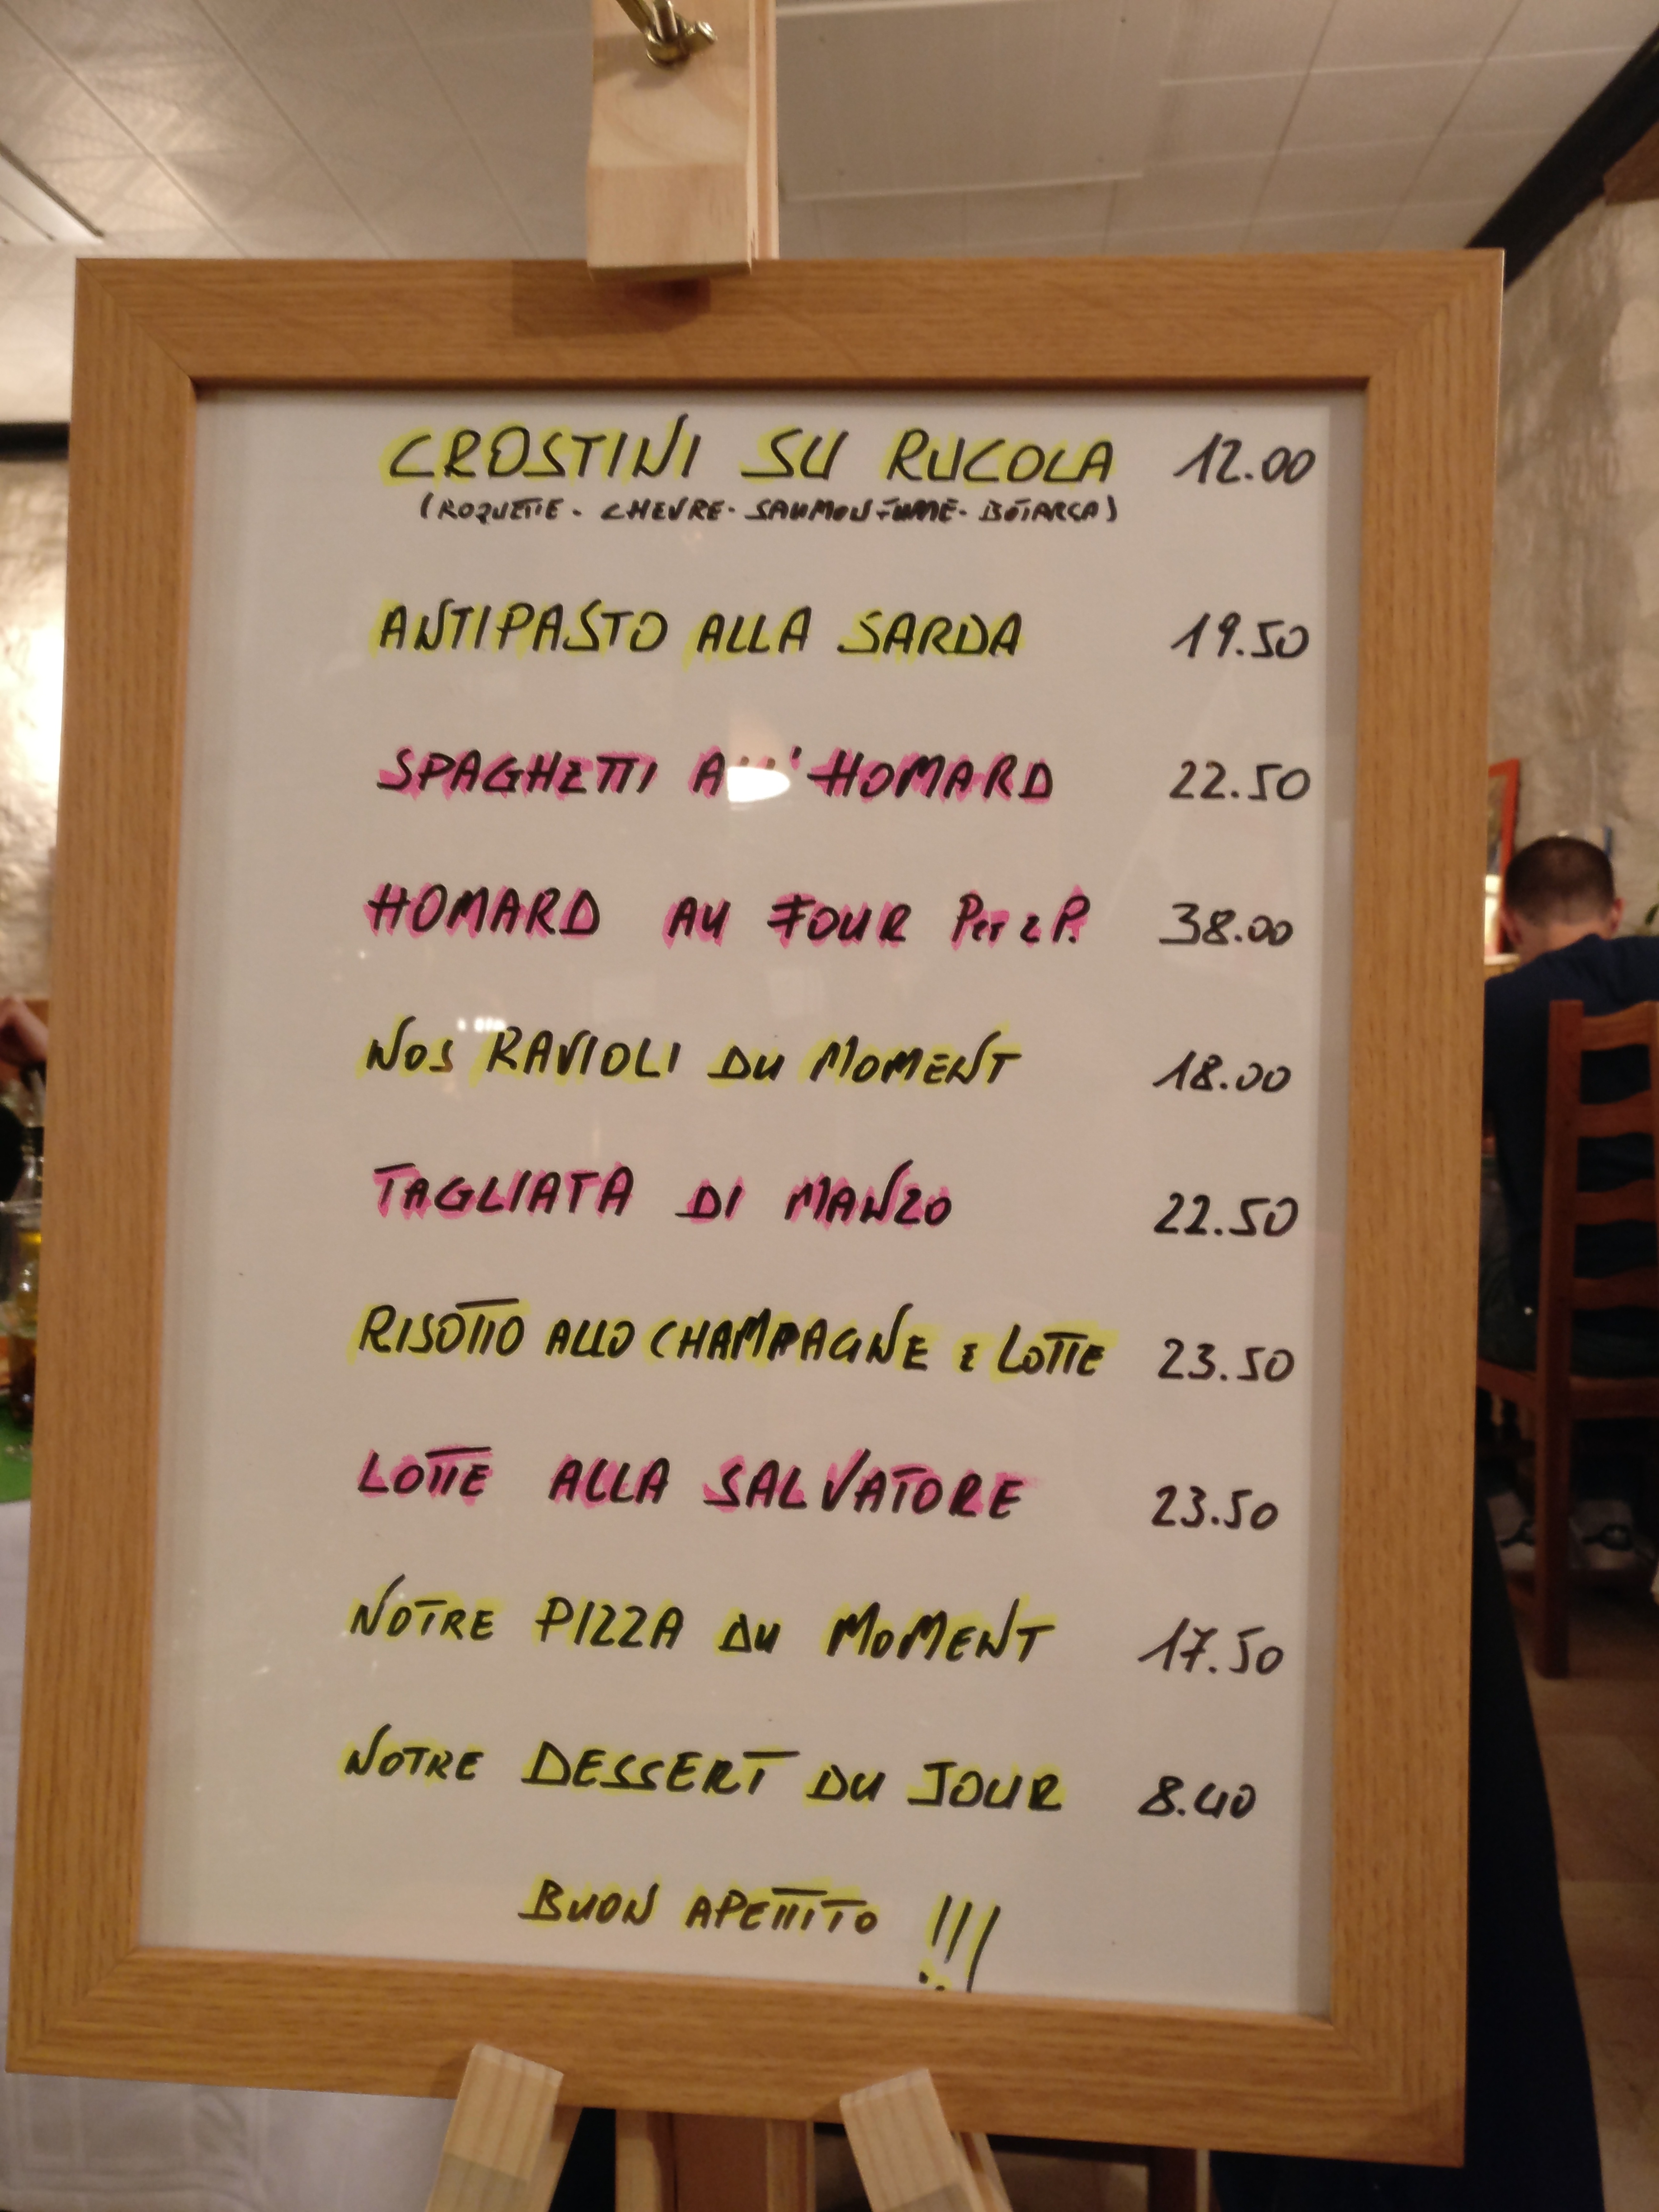 CROSTINI SU RUCOLA 12.00
(ROQUETTE - CHEVRE - SAUMON FUME - BOTARGA)
ANTIPASTO ALLA SARDA 19.50
SPAGHETTI ALL'HOMARD 22.50
HOMARD AU FOUR Per 2 P. 38.00
NOS RAVIOLI DU MOMENT 18.00
TAGLIATA DI MANZO 22.50
RISOTTO ALLO CHAMPAGNE E LOTTE 23.50
LOTTE ALLA SALVATORE 23.50
NOTRE PIZZA DU MOMENT 17.50
NOTRE DESSERT DU JOUR 8.40
BUON APETTITO !!!